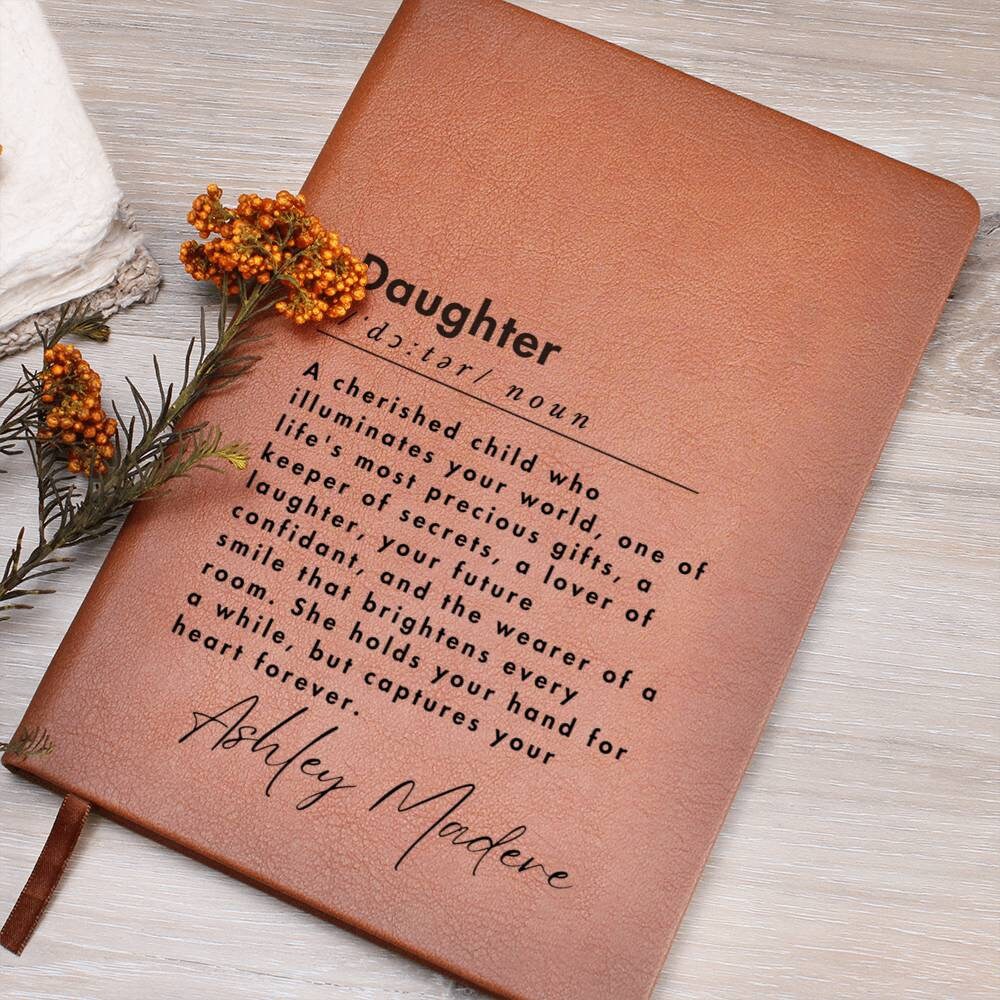 Daughter
/'dɔ:tər/ noun
A cherished child who
illuminates your world, one of
life's most precious gifts, a
keeper of secrets, a lover of
laughter, your future
confidant, and the wearer of a
smile that brightens every
room. She holds your hand for
a while, but captures your
heart forever.
Ashley Madere